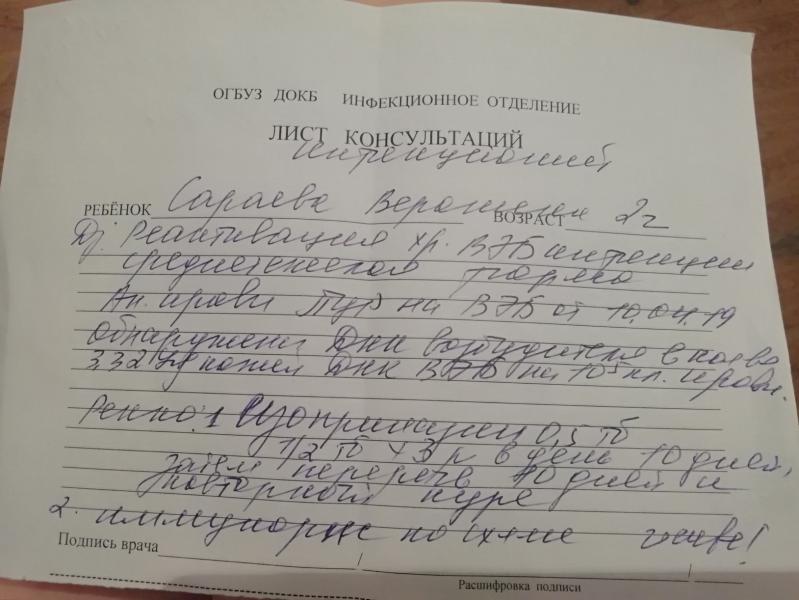 ОГБУЗ ДОКБ ИНФЕКЦИОННОЕ ОТДЕЛЕНИЕ
ЛИСТ КОНСУЛЬТАЦИЙ
РЕБЁНОК Сараева Вероника ВОЗРАСТ 2г
Ds. Реактивация хр. ВЭБ инфекции
среднетяжелая форма
Ан. крови ПЦР на ВЭБ от 10.04.19
обнаружены ДНК возбудителя в кол-ве
332 копий ДНК ВЭБ на 10⁵ кл. крови.
Реком: 1 Изопринозин 0,5 тб
1/2 тб х 3 р в день 10 дней,
затем перерыв 10 дней и
повторный курс
2. иммунорикс по схеме
Подпись врача / /
Расшифровка подписи